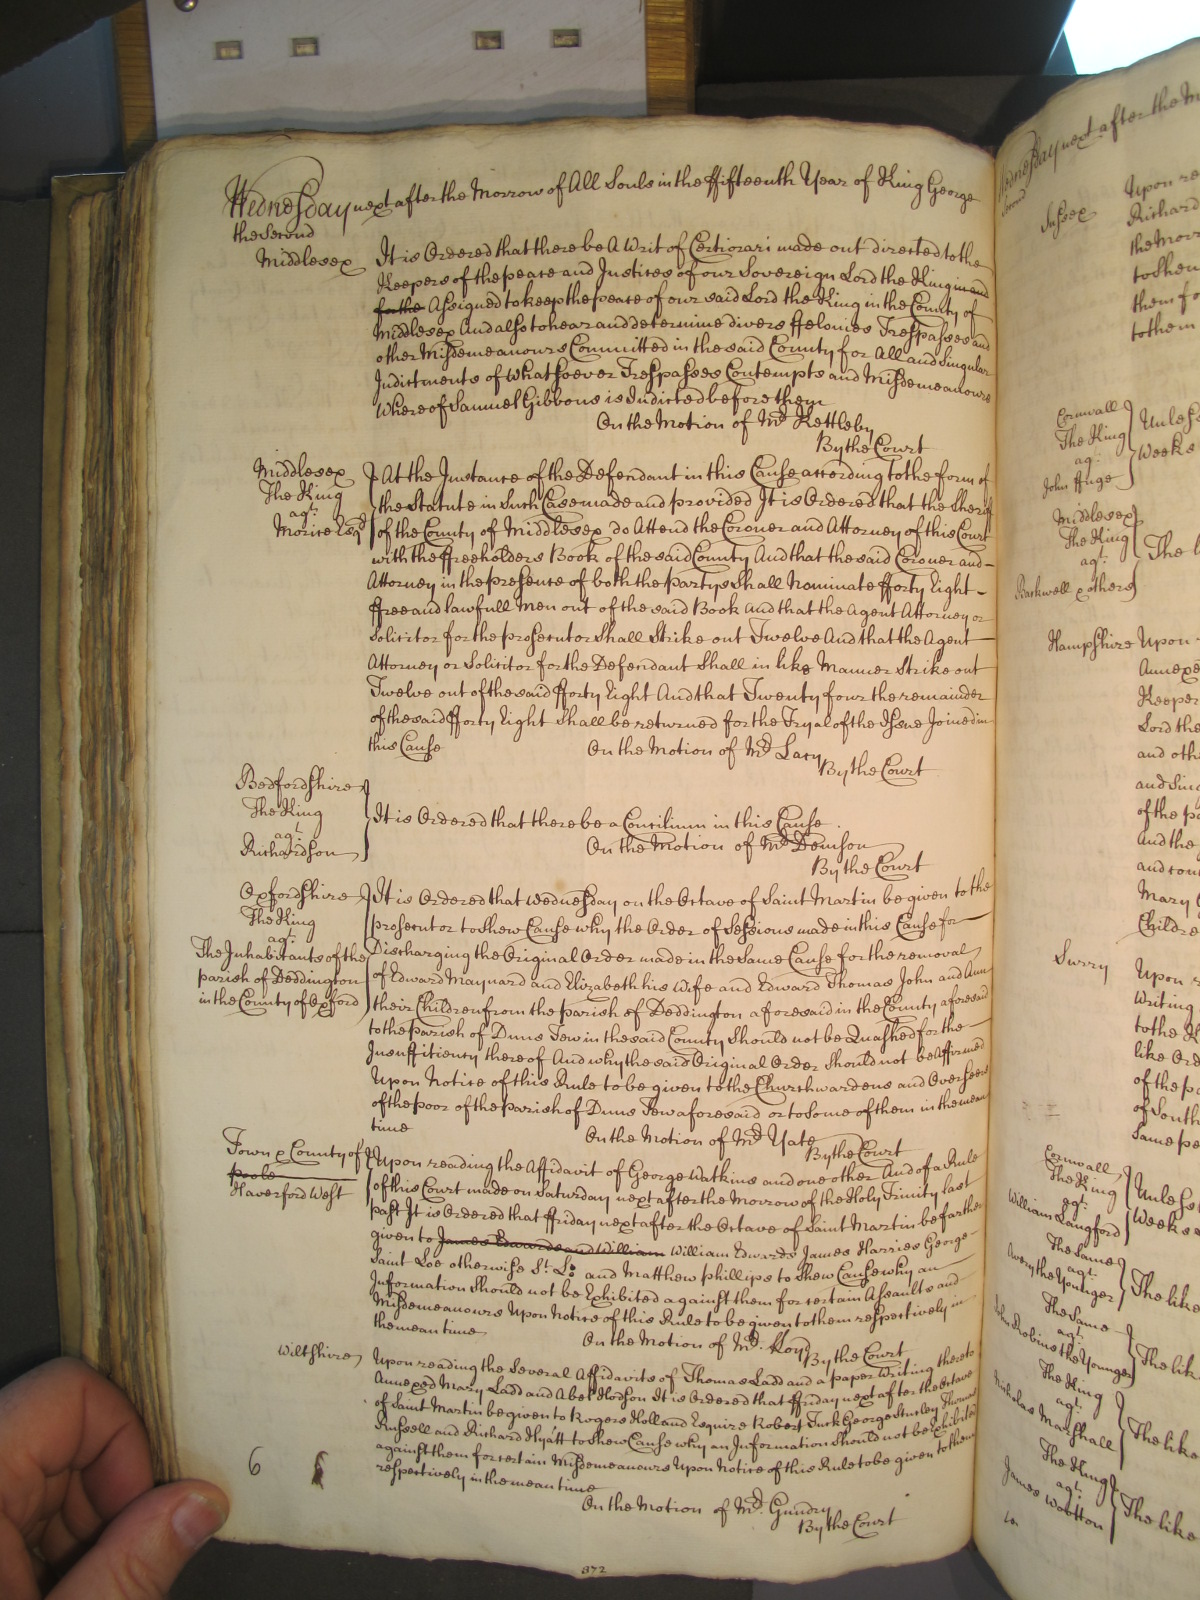 Wednesday next after the Morrow of All Souls in the ffifteenth Year of King George
the Second
Middlesex It is Ordered that there be A Writ of Certiorari made out directed to the
Keepers of the peace and Justices of our Sovereign Lord the King in and
for the Assigned to keep the peace of our said Lord the King in the County of
Middlesex And also to hear and determine divers ffelonies Trespasses and
other Misdemeanours Committed in the said County for All and Singular
Indictments of Whatsoever Trespasses Contempts and Misdemeanours
Whereof Samuel Gibbons is Indicted before them
On the Motion of Mr Kettleby
By the Court
Middlesex
The King
agt
Morice Esqr
At the Instance of the Defendant in this Cause according to the form of
the Statute in such Case made and provided It is Ordered that the Sherif
of the County of Middlesex do Attend the Coroner and Attorney of this Court
with the ffreeholders Book of the said County And that the said Coroner and
Attorney in the presence of both the partys Shall Nominate fforty Eight
ffree and lawfull Men out of the said Book And that the Agent Attorney or
Solicitor for the prosecutor Shall Strike out Twelve And that the Agent
Attorney or Solicitor for the Defendant Shall in like Manner Strike out
Twelve out of the said fforty Eight And that Twenty four the remainder
of the said fforty Eight Shall be returned for the Tryal of the Issue Joined in
this Cause On the Motion of Mr Lacy
By the Court
Bedfordshire
The King
agt
Richardson
It is Ordered that there be a Concilium in this Cause
On the Motion of Mr Denison
By the Court
Oxfordshire
The King
agt
The Inhabitants of the
parish of Deddington
in the County of Oxford
It is Ordered that Wednesday on the Octave of Saint Martin be given to the
prosecutor to shew Cause why the Order of Sessions made in this Cause for
Discharging the Original Order made in the Same Cause for the removal
of Edward Maynard and Elizabeth his Wife and Edward Thomas John and Ann
their Children from the parish of Deddington aforesaid in the County aforesaid
to the parish of Duns Tew in the said County Should not be Quashed for the
Insufficiency thereof And why the said Original Order Should not be Affirmed
Upon Notice of this Rule to be given to the Churchwardens and Overseers
of the poor of the parish of Duns Tew aforesaid or to Some of them in the mean
time On the Motion of Mr Yate
By the Court
Town & County of
poole
Haverford West
Upon reading the Affidavit of George Watkins and one other And of a Rule
of this Court made on Saturday next after the Morrow of the Holy Trinity last
past It is Ordered that ffriday next after the Octave of Saint Martin be farther
given to James Edwards and William William Edwards James Harries George
Saint Loe otherwise St. Lo and Matthew phillips to Shew Cause why an
Information Should not be Exhibited against them for certain Assaults and
Misdemeanours Upon Notice of this Rule to be given to them respectively in
the mean time
On the Motion of Mr.
By the Court
Wiltshire Upon reading the Several Affidavits of Thomas Ladd and a paper Writing thereto
Annexed Mary Ladd and Abel Hodson It is Ordered that ffriday next after the Octave
of Saint Martin be given to Rogers Holland Esquire Robert Tuck George Thomas
Russell and Richard Hyatt to Shew Cause why an Information Should not be Exhibited
against them for certain Misdemeanours Upon Notice of this Rule to be given to them
respectively in the mean time
On the Motion of Mr. Gundry
By the Court
6
372
Wednesday next after the M
Second
Sussex
Upon re
Richard
the Morr
to Shew
them fo
to them
Cornwall
The King
agt
John
Unless
Weeks
Middlesex
The King
agt
Backwell & others
The li
Hampshire Upon
Annexe
Keeper
Lord the
and oth
and Sing
of the pe
And the
and con
Mary
Childre
Surry Upon r
Writing
to the K
like Ord
of the p
of South
Same pe
Cornwall
The King
agt
William Langford
Unless
Weeks
The Same
agt
Avery the Younger
The like
The Same
agt
John Robins the Younger
The lik
The King
agt
Nicholas Marshall
The like
The King
agt
James Wootton
The like